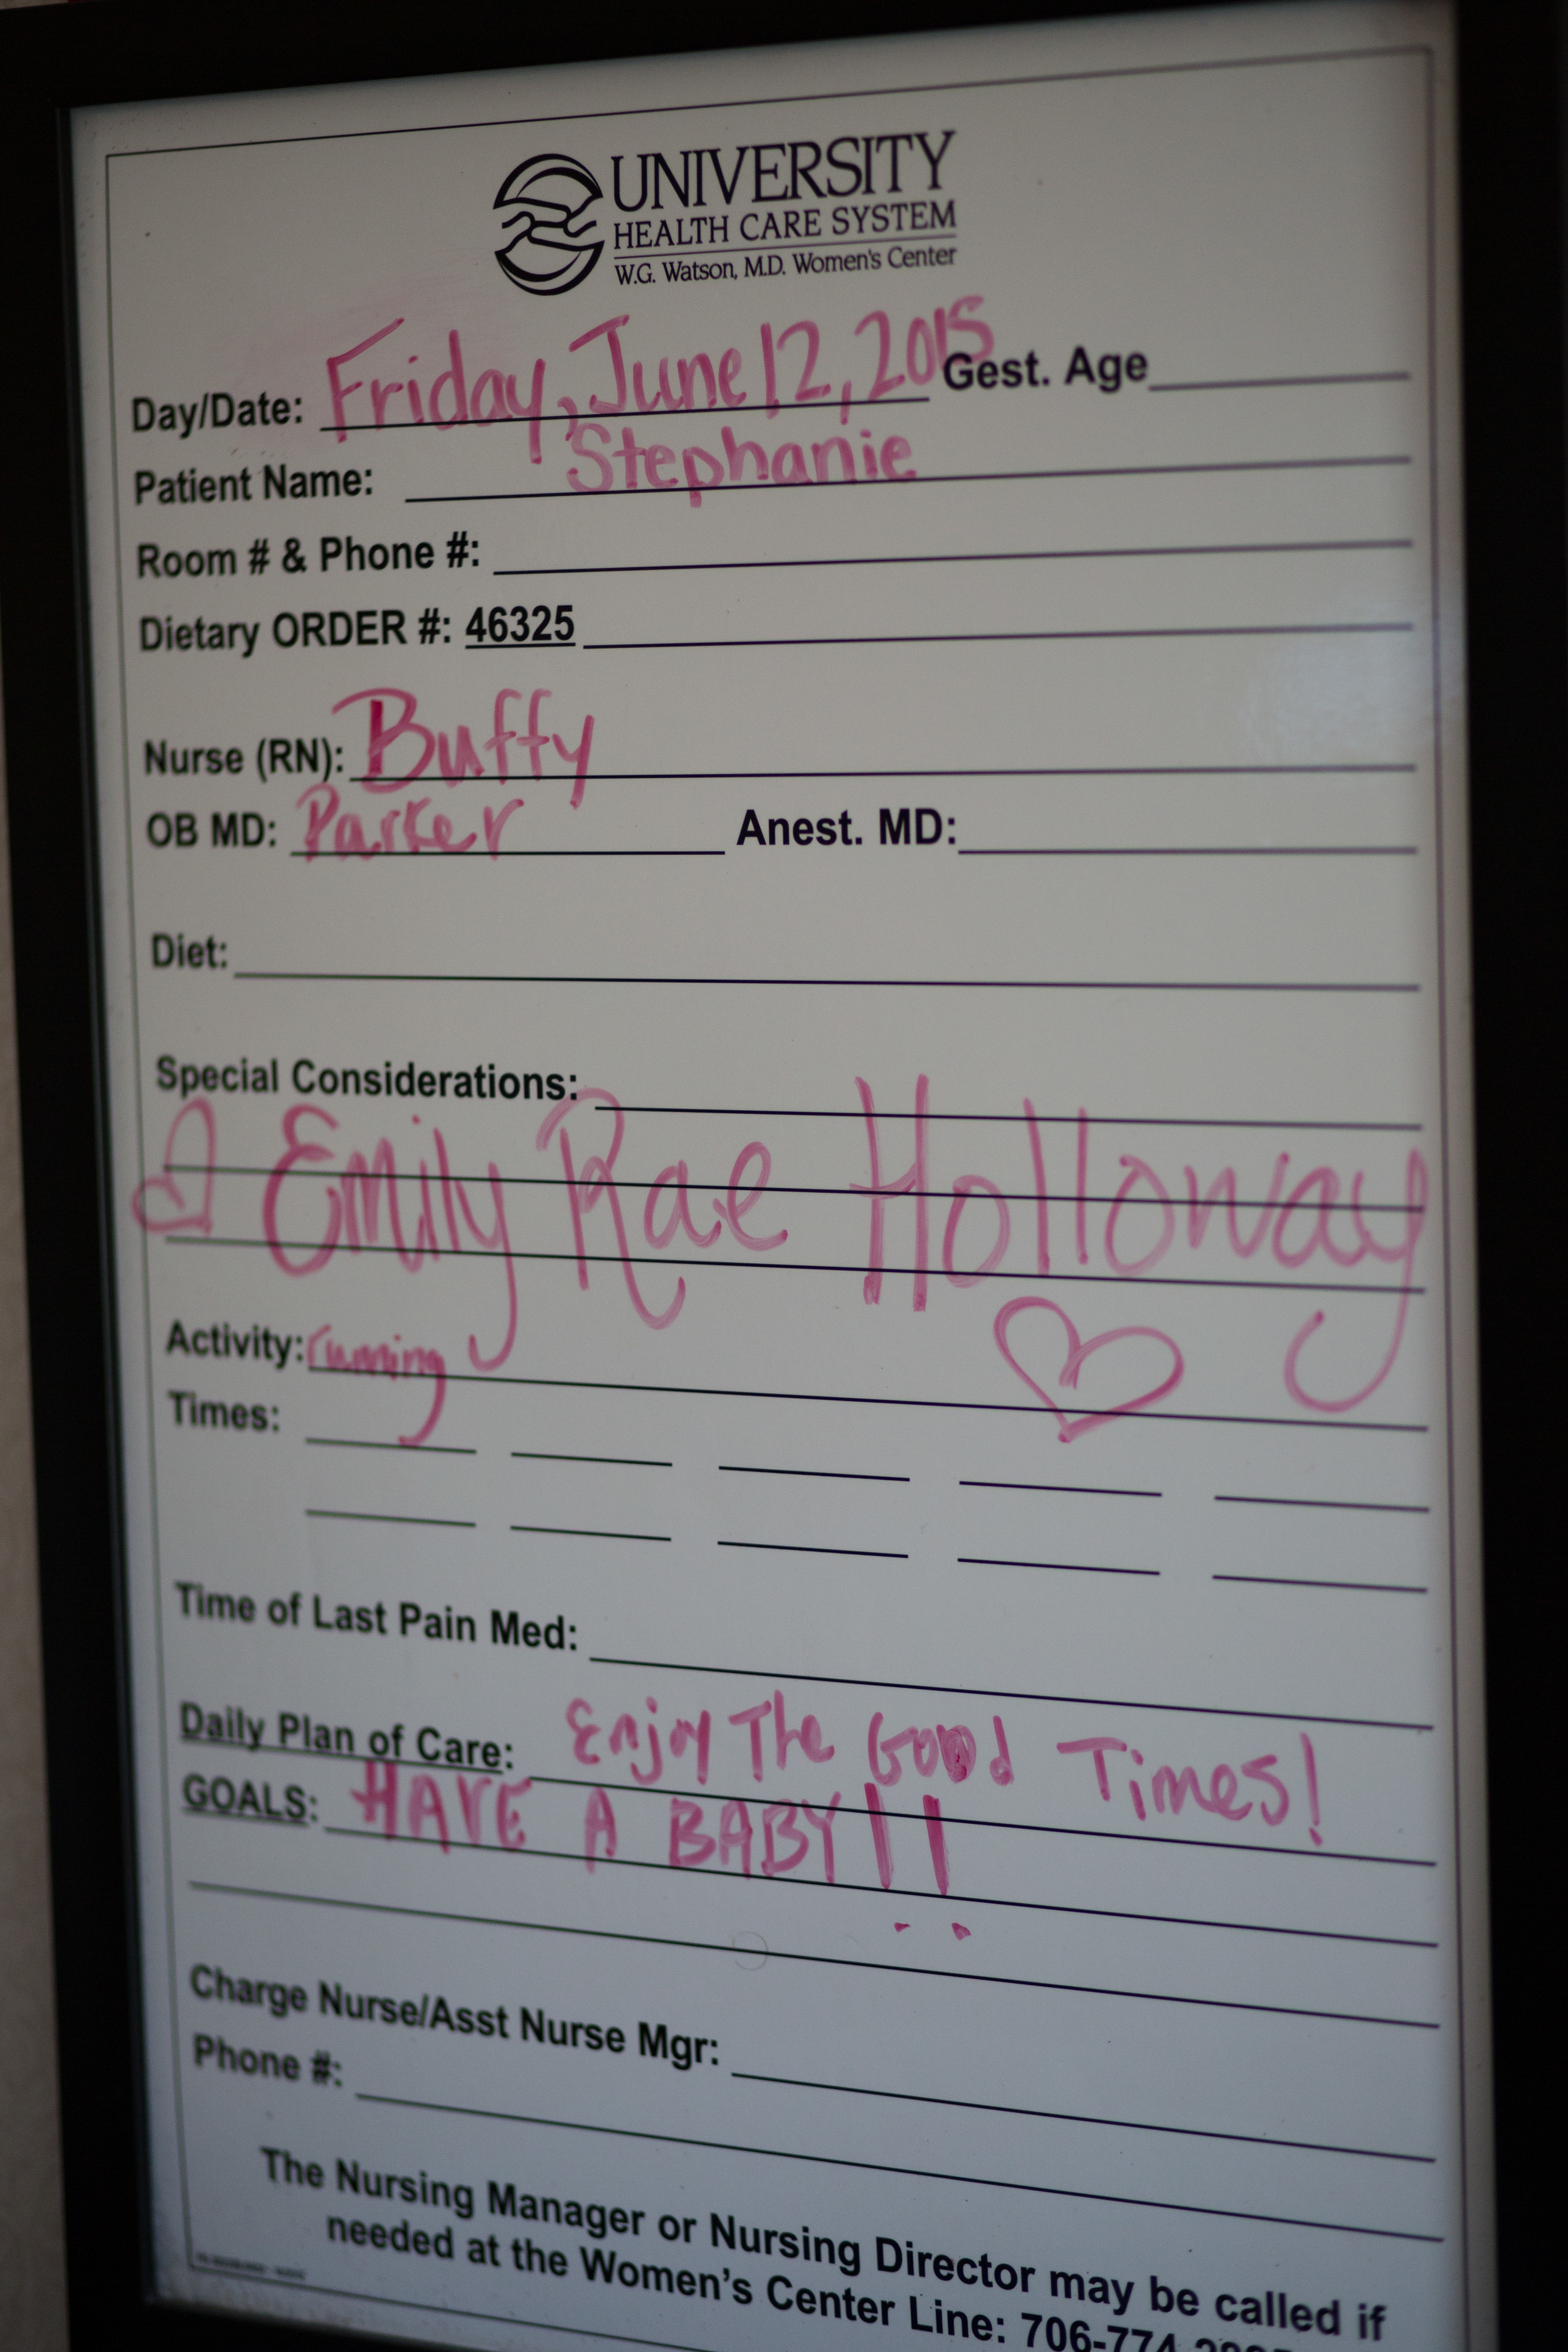 UNIVERSITY
HEALTH CARE SYSTEM
W.G. Watson, M.D. Women's Center
Day/Date: Friday, June 12, 2015 Gest. Age
Patient Name: Stephanie
Room # & Phone #:
Dietary ORDER #: 46325
Nurse (RN): Buffy
OB MD: Parker Anest. MD:
Diet:
Special Considerations:
Emily Rae Holloway
Activity: running
Times:
Time of Last Pain Med:
Daily Plan of Care: Enjoy The Good Times!
GOALS: HAVE A BABY!!
Charge Nurse/Asst Nurse Mgr:
Phone #:
The Nursing Manager or Nursing Director may be called if
needed at the Women's Center Line: 706-774